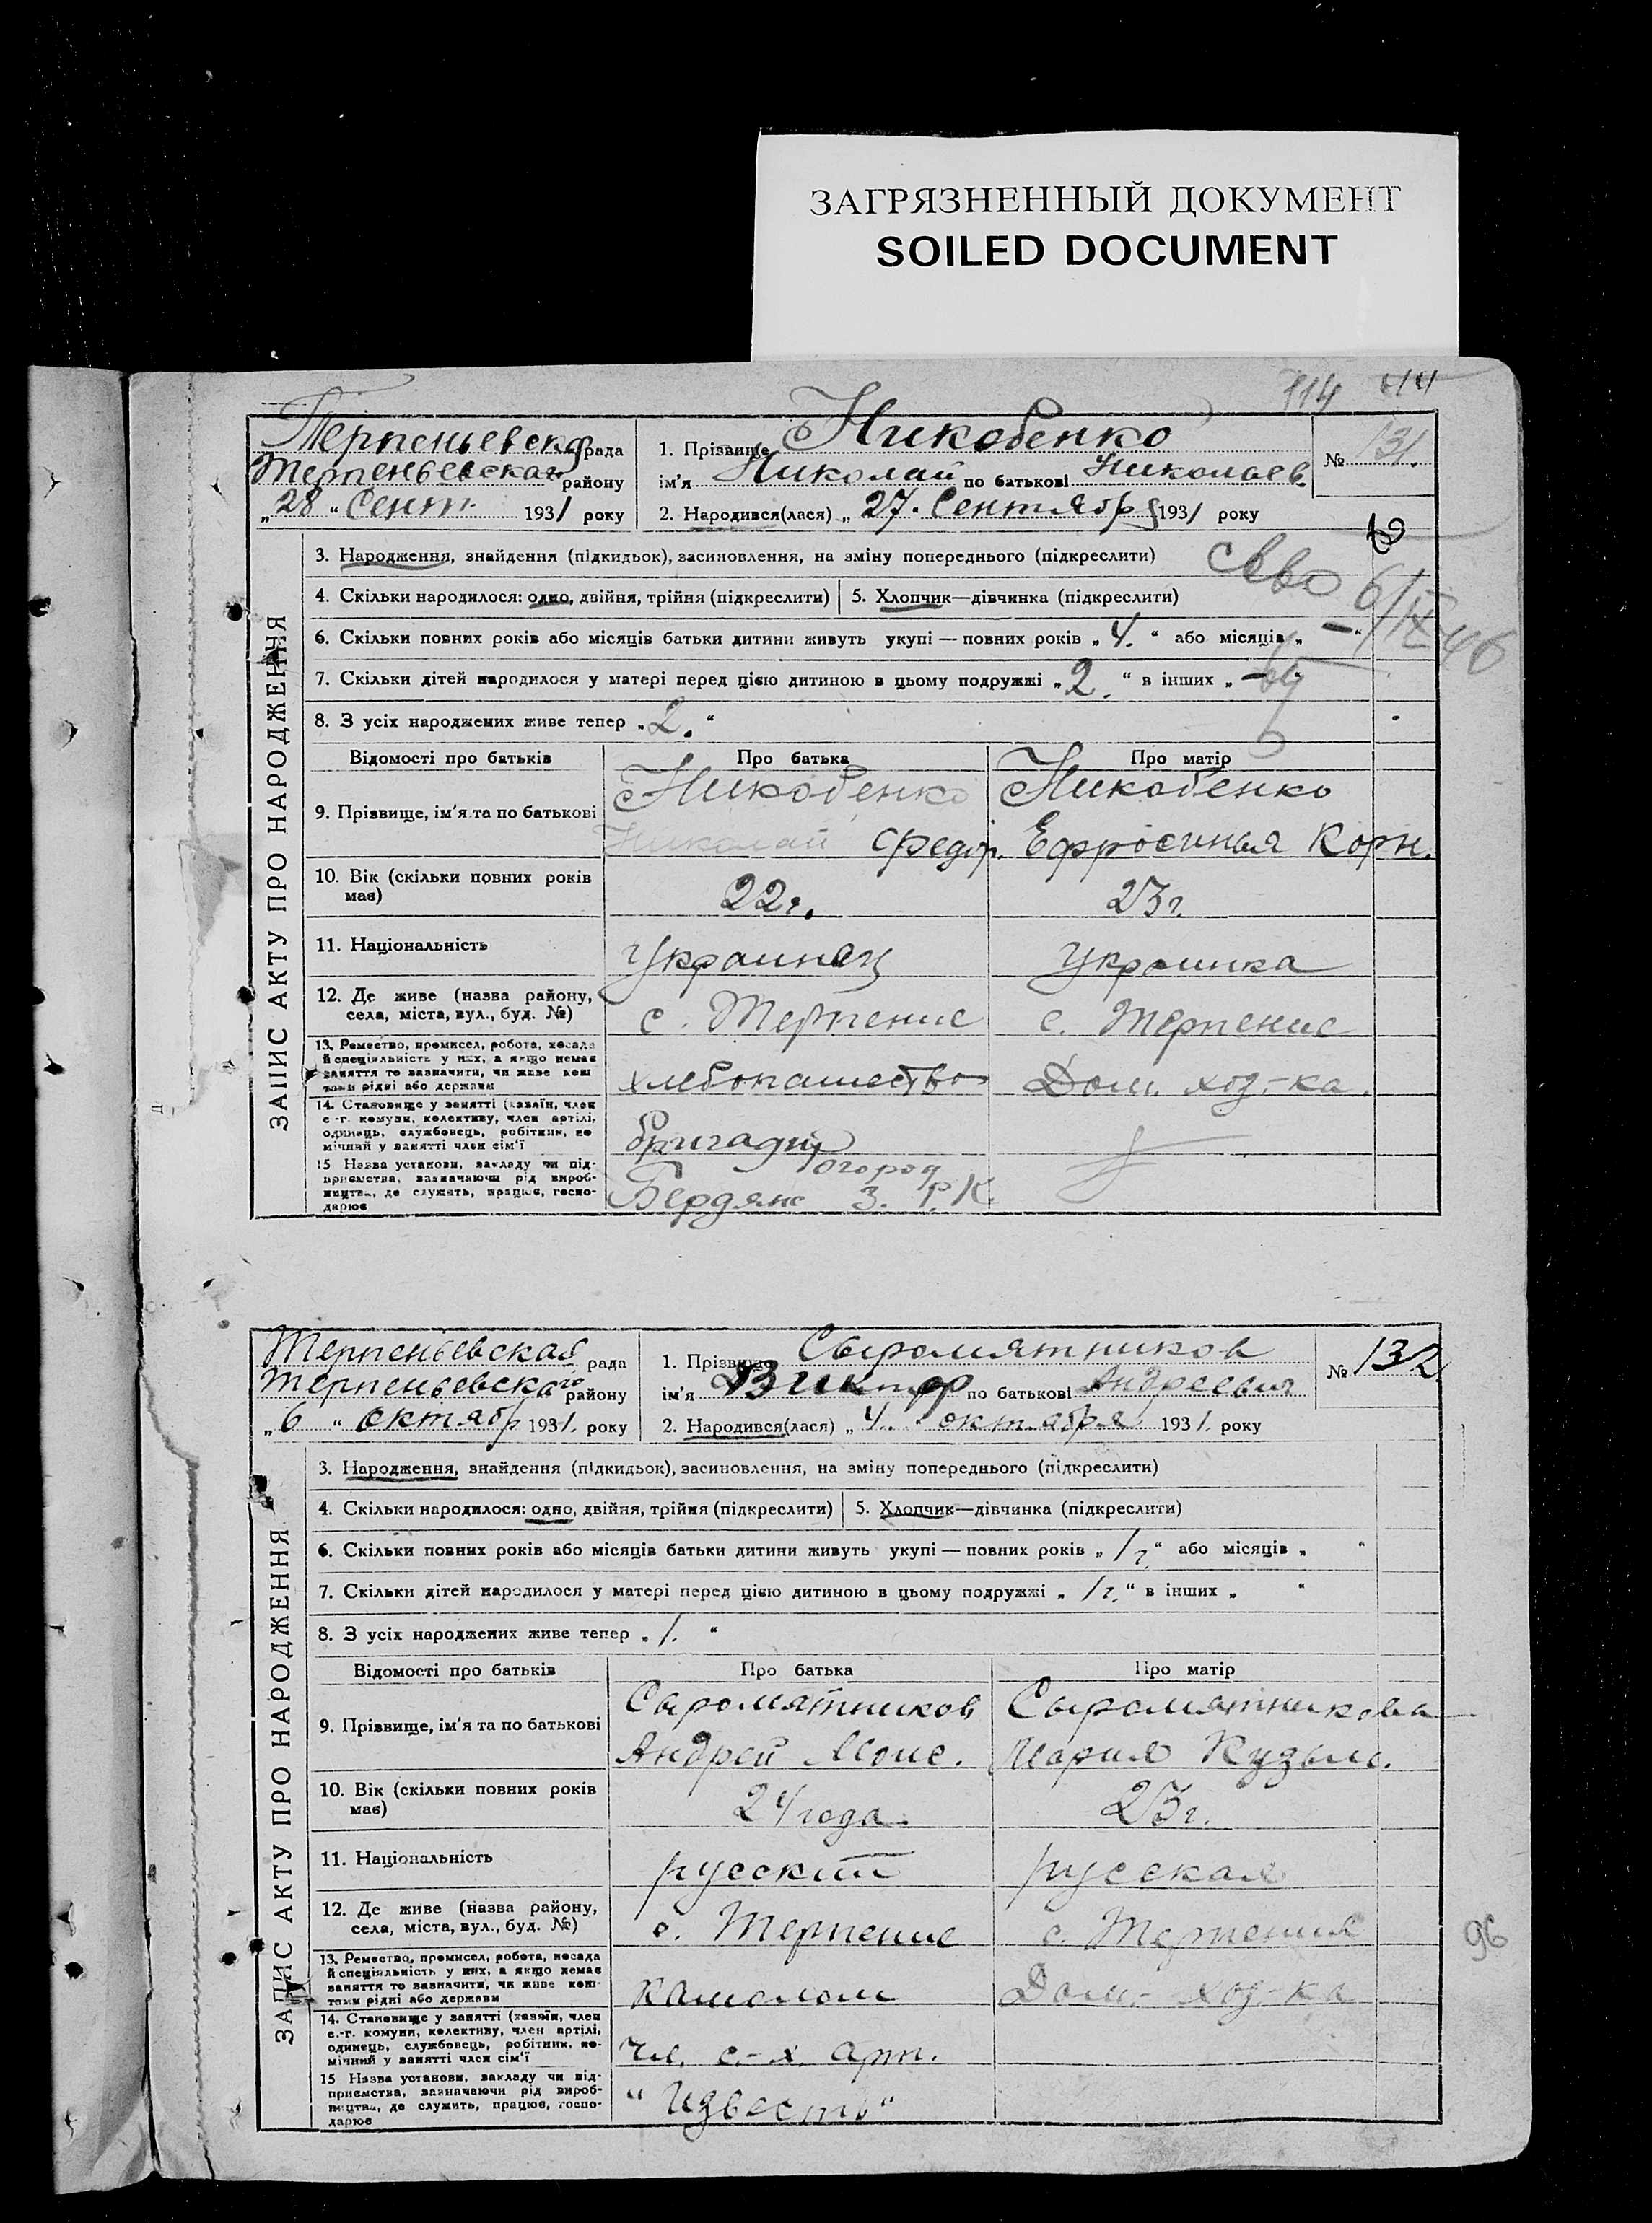 ЗАГРЯЗНЕННЫЙ ДОКУМЕНТ
SOILED DOCUMENT
114
Терпеньевская рада
Терпеньевская району
„28 “ Сент. 1931 року
1. Прізвище Никобенко
ім'я Николай по батькові Николаев.
2. Народився(лася) „ 27. Сентября 1931 року
№ 131.
ЗАПИС АКТУ ПРО НАРОДЖЕННЯ
3. Народження, знайдення (підкидьок), засиновлення, на зміну попереднього (підкреслити)
4. Скільки народилося: одно, двійня, трійня (підкреслити) 5. Хлопчик—дівчинка (підкреслити)
6. Скільки повних років або місяців батьки дитини живуть укупі — повних років „ 4. “ або місяців „ — “
7. Скільки дітей народилося у матері перед цією дитиною в цьому подружжі „ 2. “ в інших „ —
8. З усіх народжених живе тепер „ 2. “
6/IX 46
Відомості про батьків Про батька Про матір
9. Прізвище, ім'я та по батькові
Никобенко Николай Федор.
Никобенко Ефросинья Корн.
10. Вік (скільки повних років має) 22г. 23г.
11. Національність Украинец Украинка
12. Де живе (назва району, села, міста, вул., буд. №) с. Терпение с. Терпение
13. Ремество, промисел, робота, посада
й спеціяльність у них, а якщо немає
заняття то зазначити, чи живе кош-
тами рідні або держави
хлебопашество Дом. хоз-ка.
14. Становище у занятті (хазяїн, член
с.-г. комуни, колективу, член артілі,
одинець, службовець, робітник, по-
мічний у занятті член сім'ї
бригадир
15 Назва установи, закладу чи під-
приємства, зазначаючи рід вироб-
ництва, де служить, працює, госпо-
дарює
огород
Бердянс З. Р.К.
Терпеньевская рада
Терпеньевского району
„6 “ октябр 1931. року
1. Прізвище Сыромятников
ім'я Виктор по батькові Андреевич
2. Народився(лася) „ 4. октября 1931. року
№ 132
ЗАПИС АКТУ ПРО НАРОДЖЕННЯ
3. Народження, знайдення (підкидьок), засиновлення, на зміну попереднього (підкреслити)
4. Скільки народилося: одно, двійня, трійня (підкреслити) 5. Хлопчик—дівчинка (підкреслити)
6. Скільки повних років або місяців батьки дитини живуть укупі — повних років „ 1г. “ або місяців „ “
7. Скільки дітей народилося у матері перед цією дитиною в цьому подружжі „ 1г. “ в інших „ “
8. З усіх народжених живе тепер „ 1. “
Відомості про батьків Про батька Про матір
9. Прізвище, ім'я та по батькові
Сыромятников Андрей Моис.
Сыромятникова Мария Кузьм.
10. Вік (скільки повних років має) 24 года. 23г.
11. Національність русский русская
12. Де живе (назва району, села, міста, вул., буд. №) с. Терпение с. Терпения
96
13. Ремество, промисел, робота, посада
й спеціяльність у них, а якщо немає
заняття то зазначити, чи живе кош-
тами рідні або держави
Дом.- хоз-ка
14. Становище у занятті (хазяїн, член
с.-г. комуни, колективу, член артілі,
одинець, службовець, робітник, по-
мічний у занятті член сім'ї
Чл. с.-х. арт.
15 Назва установи, закладу чи під-
приємства, зазначаючи рід вироб-
ництва, де служить, працює, госпо-
дарює
"Известь"